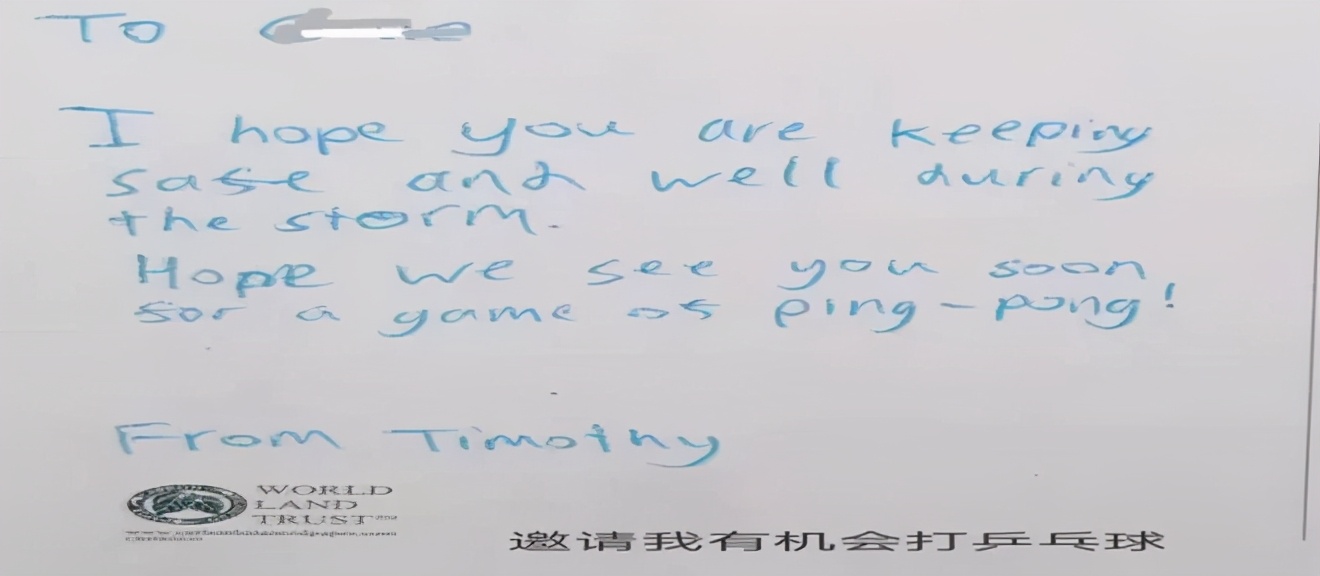 To
I hope you are keeping
safe and well during
the storm.
Hope we see you soon
for a game of ping-pong!
From Timothy
WORLD
LAND
TRUST
邀请我有机会打乒乓球